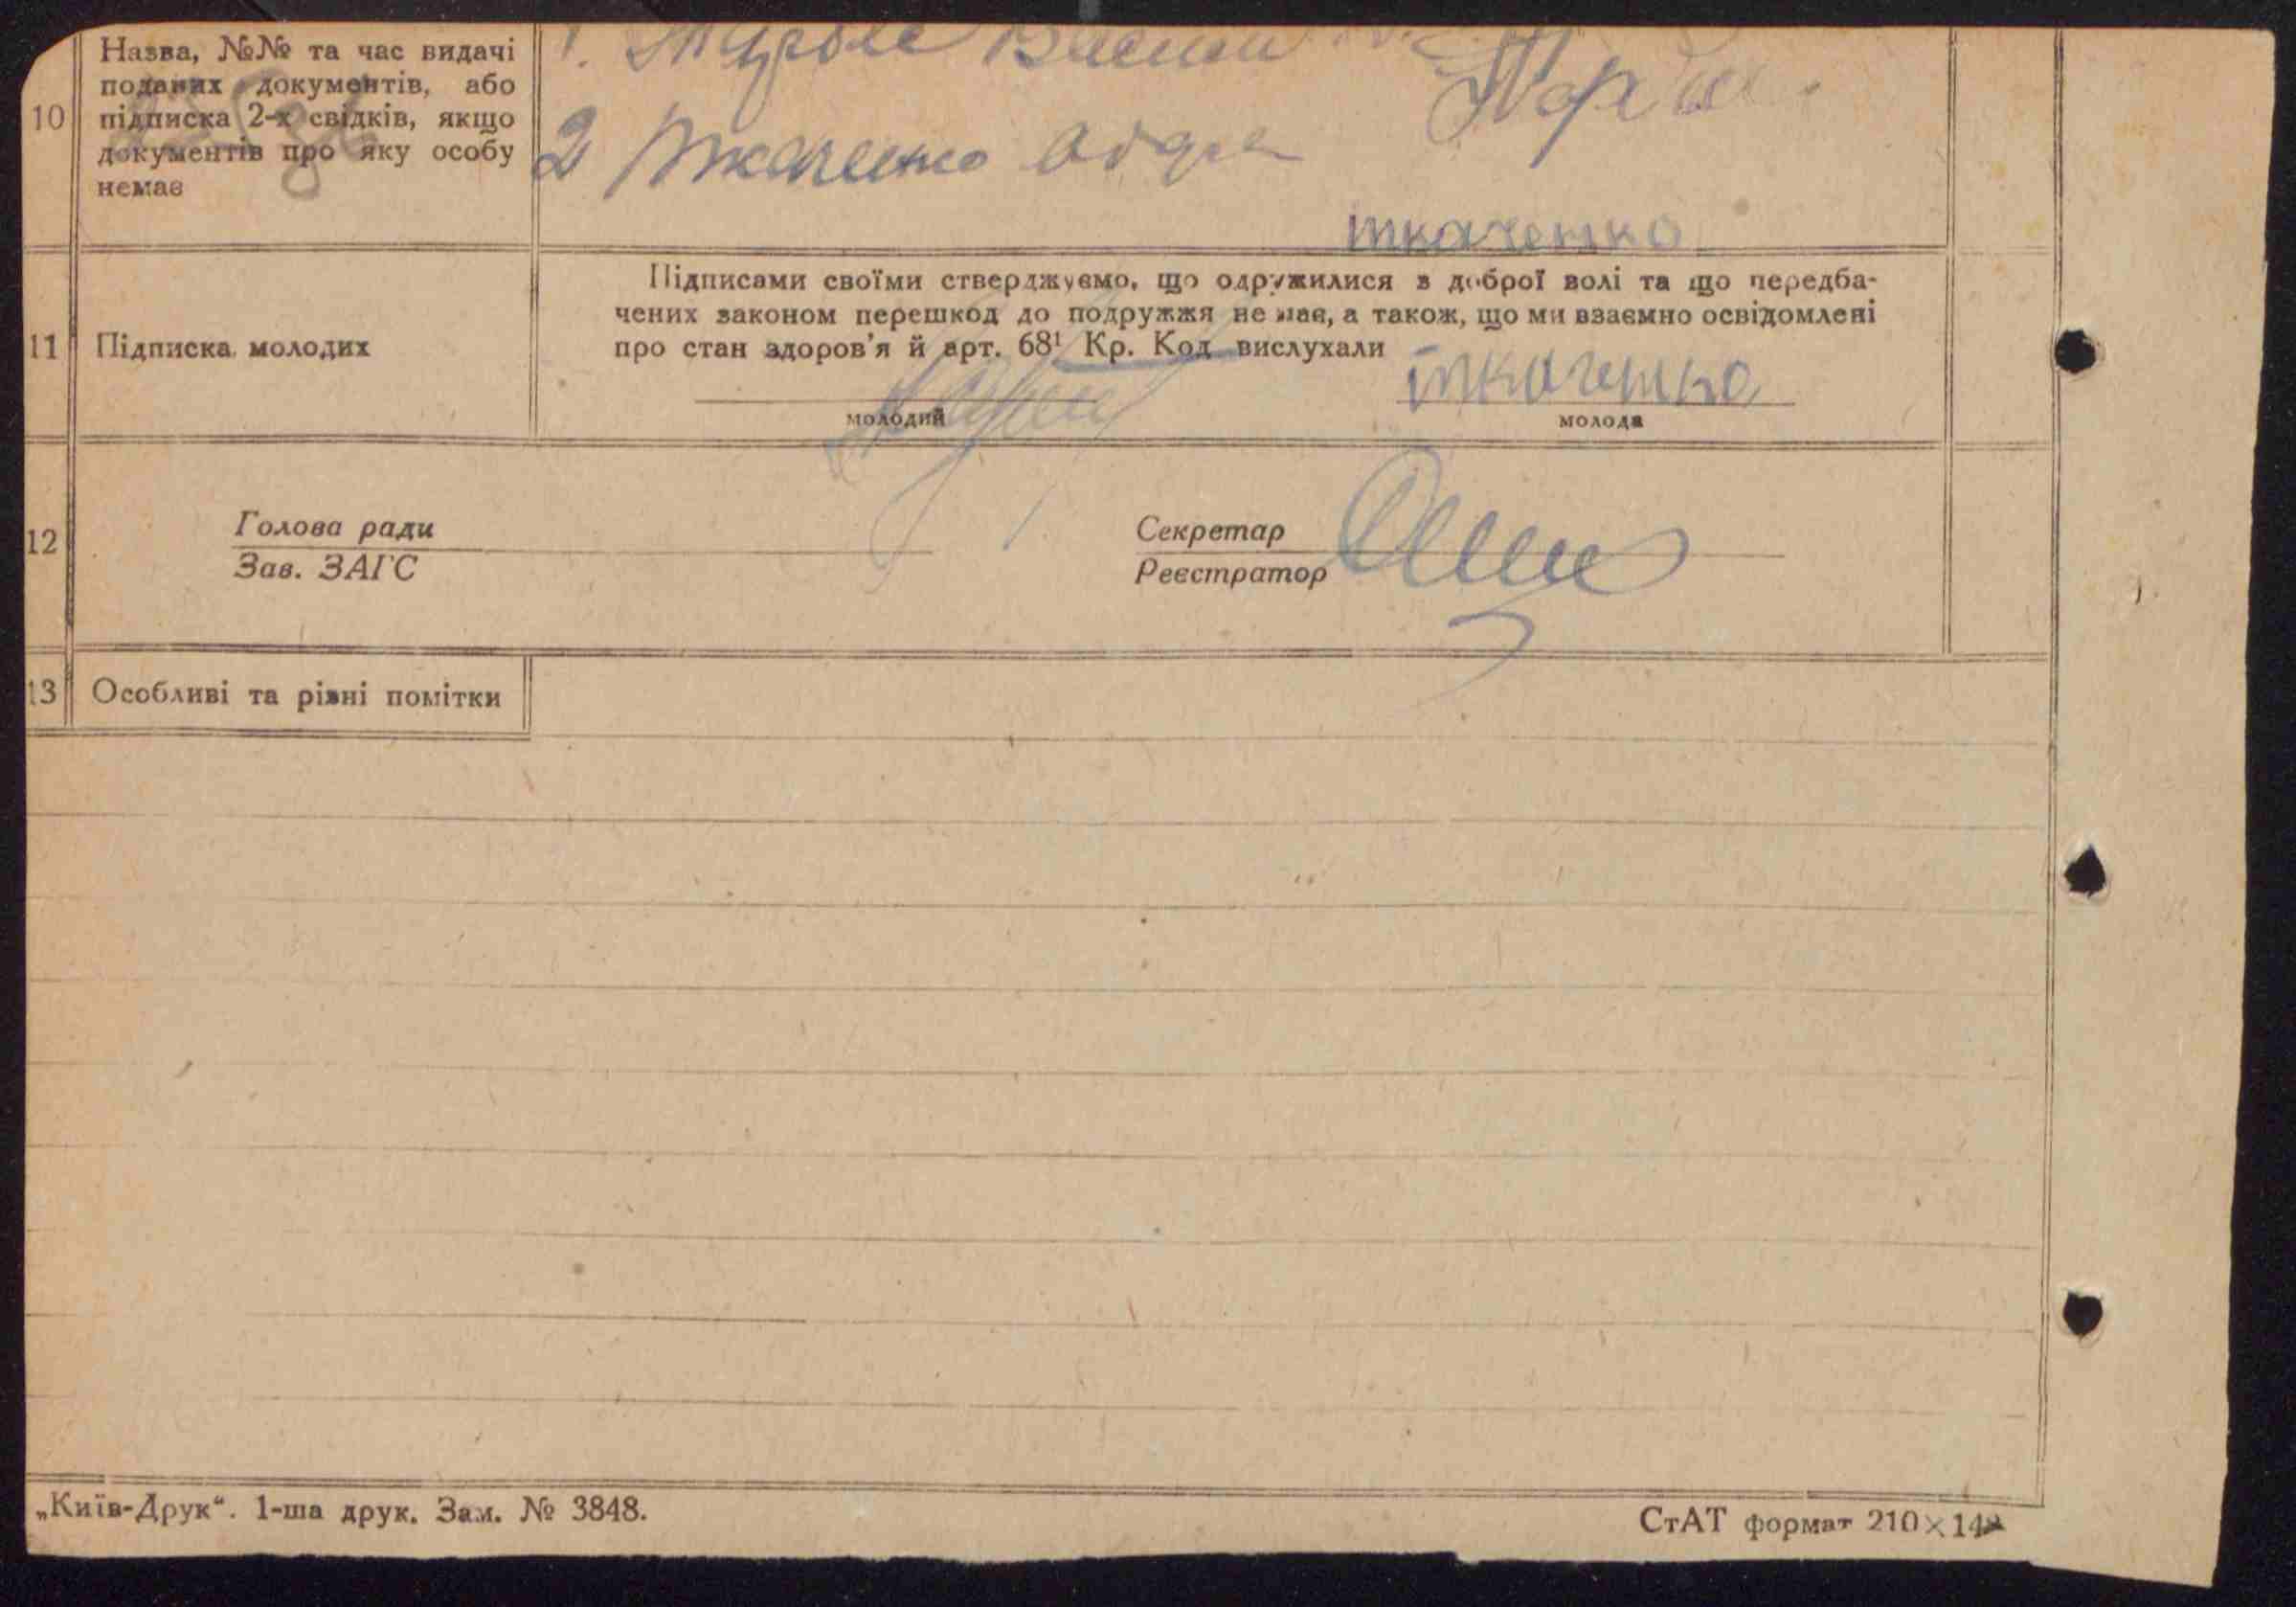 10
Назва, №№ та час видачі
поданих документів, або
підписка 2-х свідків, якщо
документів про яку особу
немає
1.
2 Ткаченко
ткаченко
11
Підписка молодих
Підписами своїми стверджуємо, що одружилися з доброї волі та що передба-
чених законом перешкод до подружжя немає, а також, що ми взаємно освідомлені
про стан здоров'я й арт. 68¹ Кр. Код вислухали
ткаченко
молодий
молода
12
Голова ради
Зав. ЗАГС
Секретар
Реєстратор
13
Особливі та різні помітки
„Київ-Друк“. 1-ша друк. Зам. № 3848.
СтАТ формат 210×14